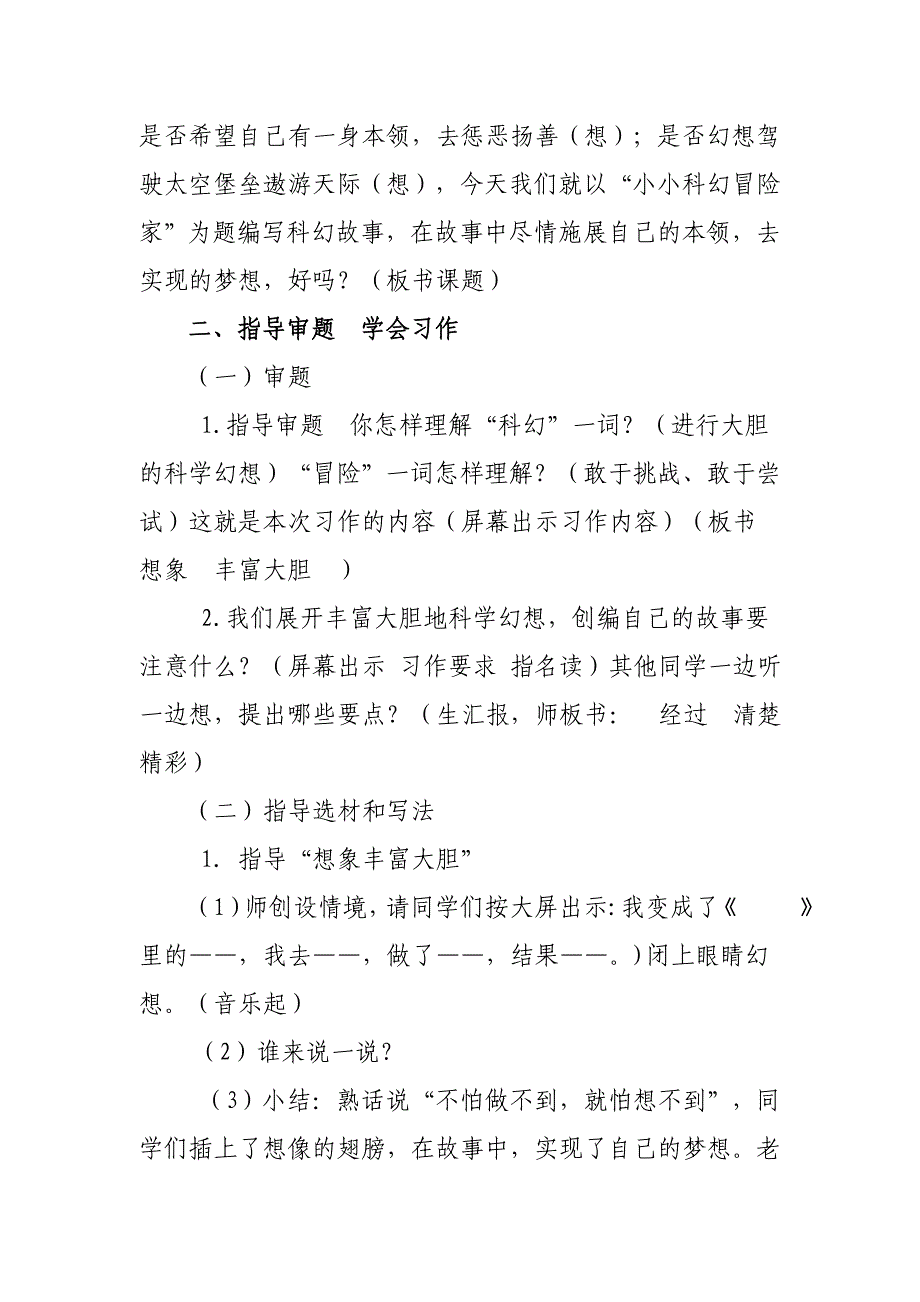 是否希望自己有一身本领，去惩恶扬善（想）；是否幻想驾
驶太空堡垒遨游天际（想），今天我们就以“小小科幻冒险
家”为题编写科幻故事，在故事中尽情施展自己的本领，去
实现的梦想，好吗？（板书课题）
二、指导审题　学会习作
（一）审题
1.指导审题　你怎样理解“科幻”一词？（进行大胆
的科学幻想）“冒险”一词怎样理解？（敢于挑战、敢于尝
试）这就是本次习作的内容（屏幕出示习作内容）（板书
想象　丰富大胆　）
2.我们展开丰富大胆地科学幻想，创编自己的故事要
注意什么？（屏幕出示 习作要求 指名读）其他同学一边听
一边想，提出哪些要点？（生汇报，师板书：　经过　清楚
精彩）
（二）指导选材和写法
1. 指导“想象丰富大胆”
（1）师创设情境，请同学们按大屏出示：我变成了《　　》
里的——，我去——，做了——，结果——。）闭上眼睛幻
想。（音乐起）
（2）谁来说一说？
（3）小结：熟话说“不怕做不到，就怕想不到”，同
学们插上了想像的翅膀，在故事中，实现了自己的梦想。老